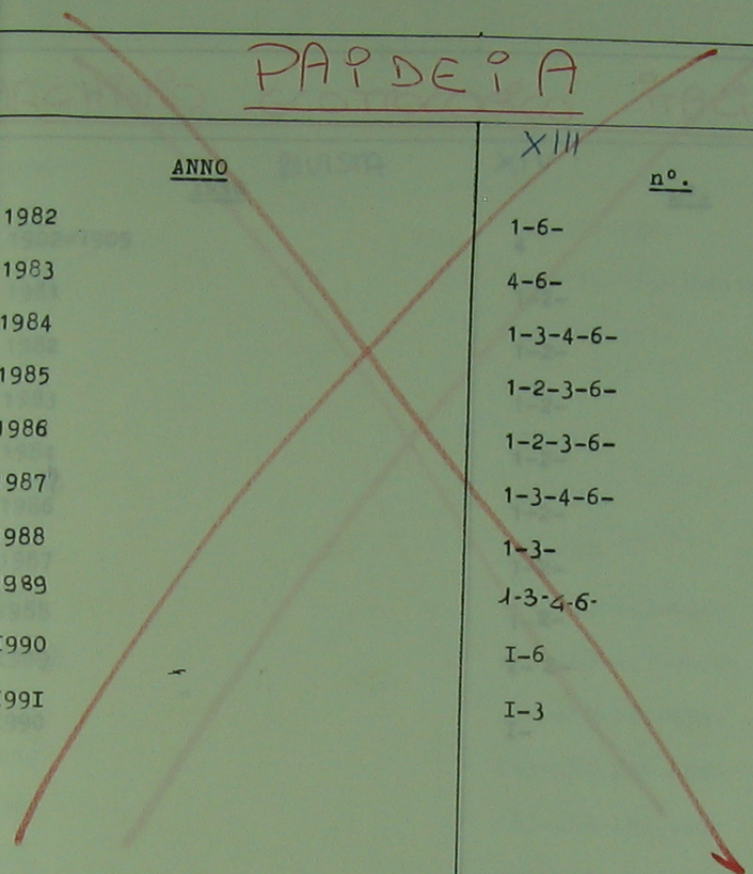 PAiDEiA
XIII
ANNO nº.
1982 1-6-
1983 4-6-
1984 1-3-4-6-
1985 1-2-3-6-
1986 1-2-3-6-
987 1-3-4-6-
988 1-3-
989 1-3-4-6-
I990 I-6
I99I I-3